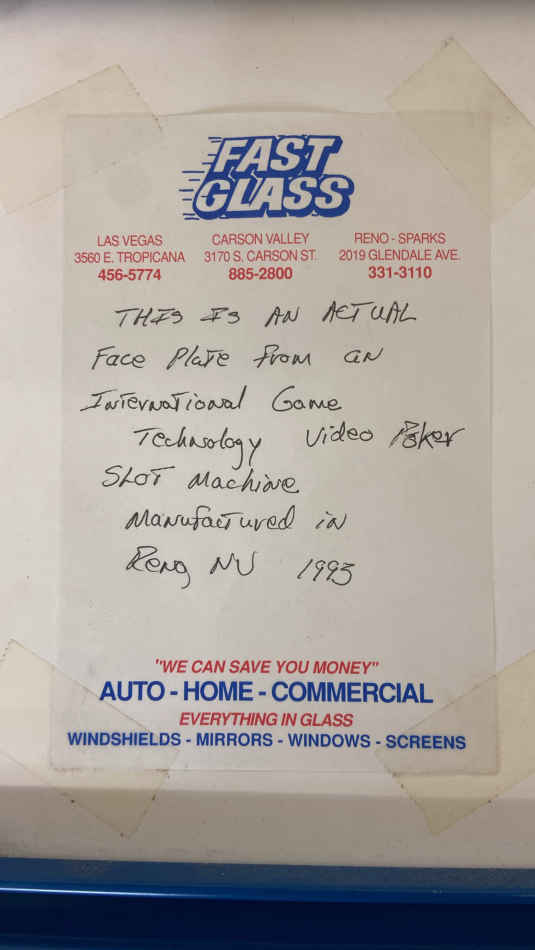 FAST
GLASS
LAS VEGAS CARSON VALLEY RENO - SPARKS
3560 E. TROPICANA 3170 S. CARSON ST. 2019 GLENDALE AVE.
456-5774 885-2800 331-3110
THIS IS AN ACTUAL
Face Plate from an
International Game
Technology Video Poker
Slot Machine
Manufactured in
Reno NV 1993
"WE CAN SAVE YOU MONEY"
AUTO - HOME - COMMERCIAL
EVERYTHING IN GLASS
WINDSHIELDS - MIRRORS - WINDOWS - SCREENS